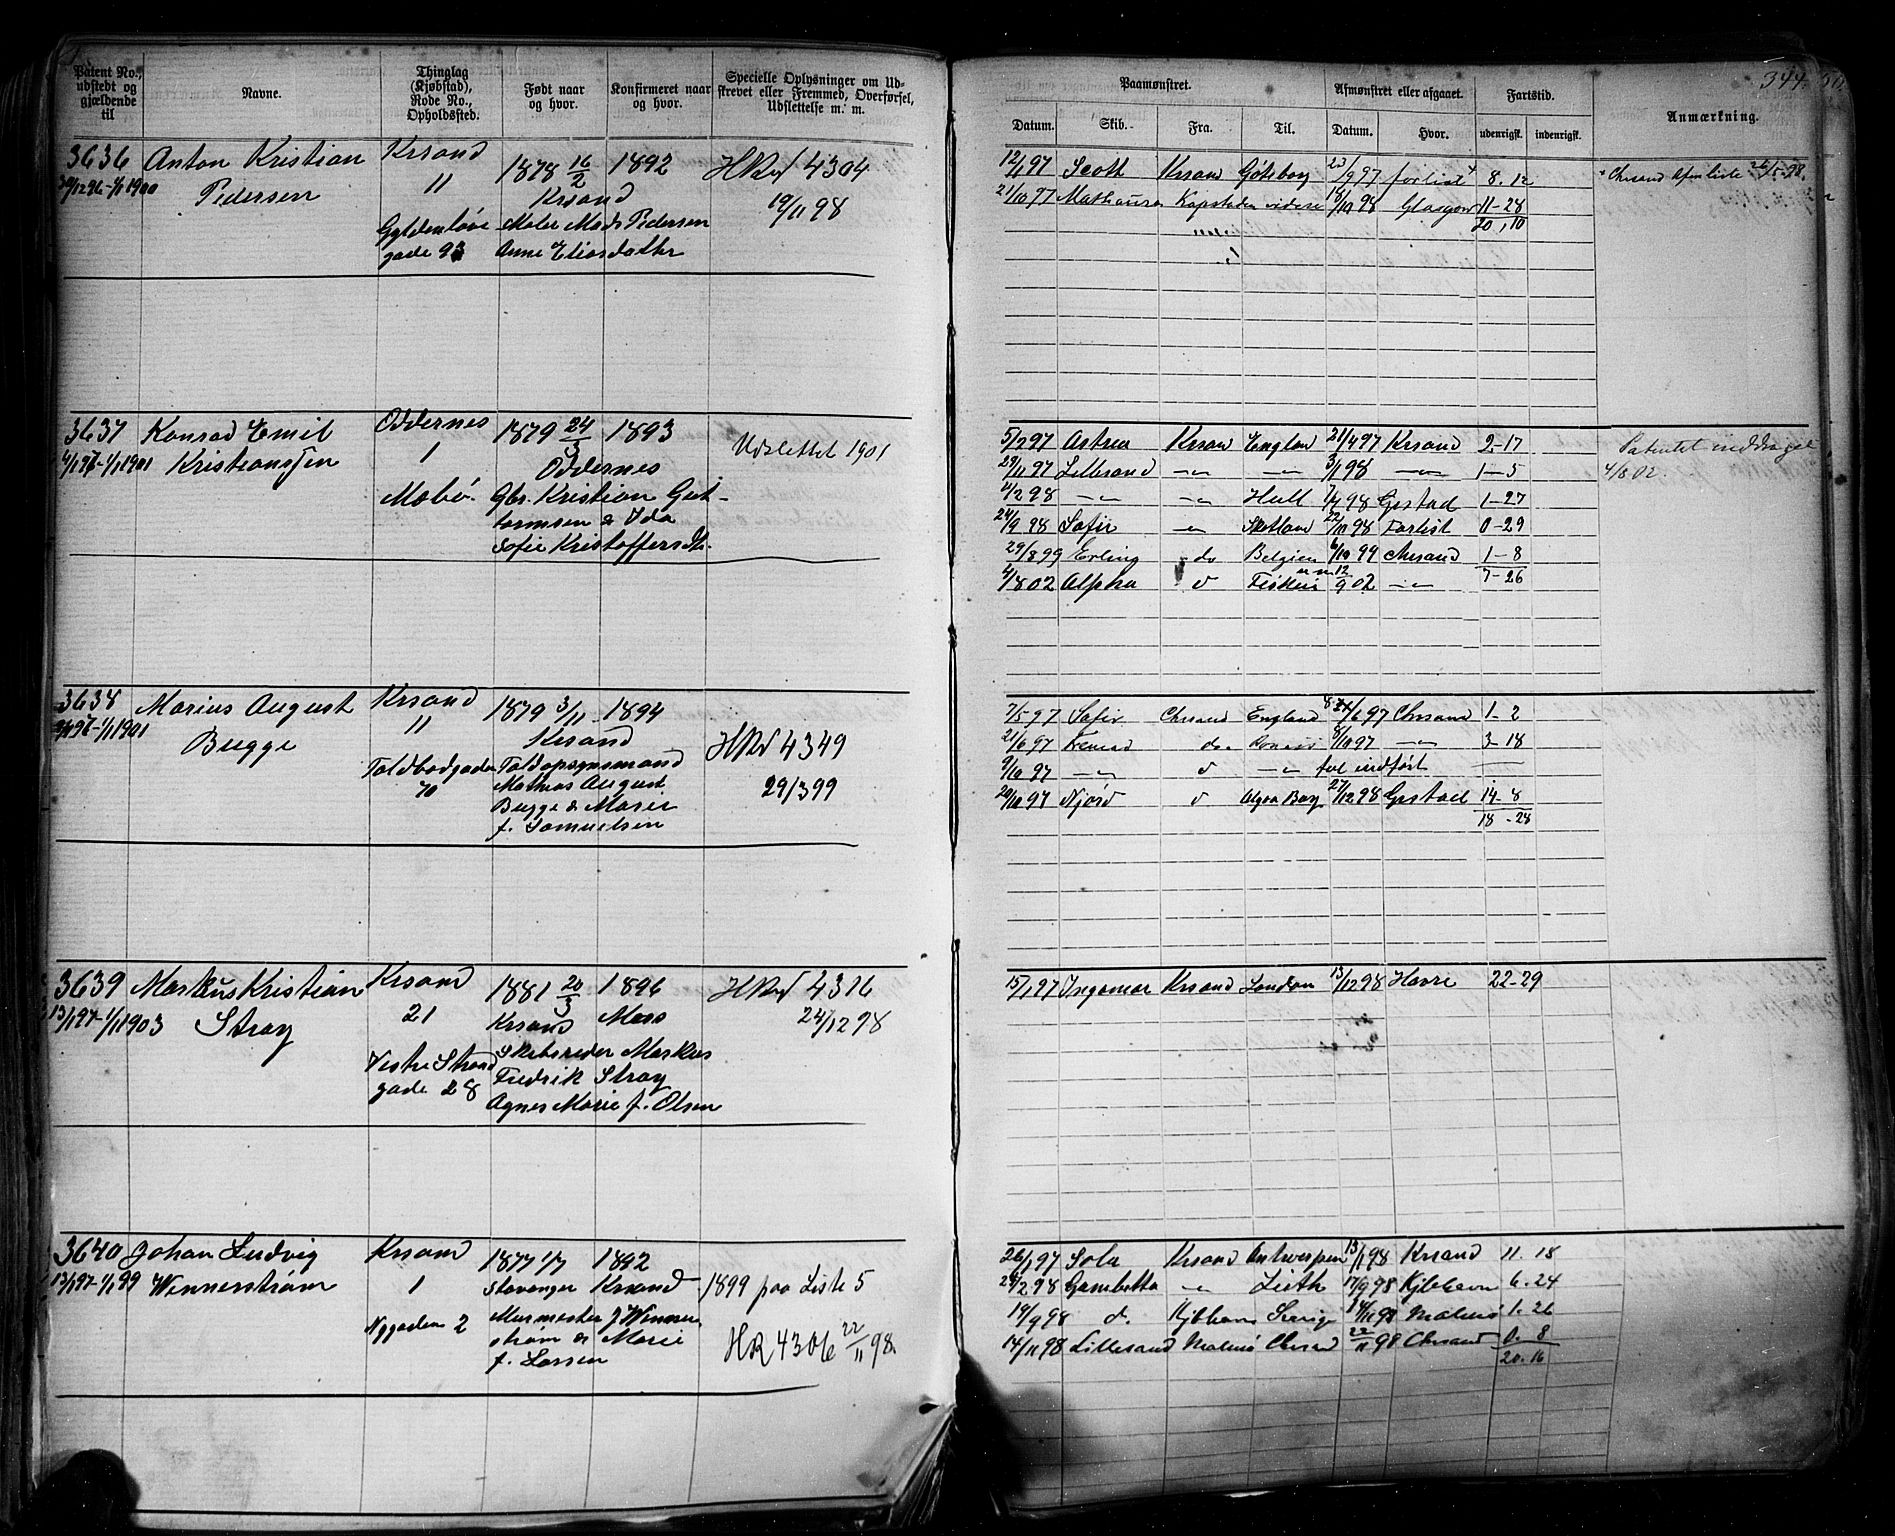 Patent No., udstedt og gjældende til
Navne.
Thinglag (Kjøbstad), Rode No., Opholdssted.
Født naar og hvor.
Konfirmeret naar og hvor.
Specielle Oplysninger om Udskrevet eller Fremmed, Overførsel, Udslettelse m. m.
3636 Anton Kristian Krsand 1878 16/2 1892 HRuf 4304
Pedersen 11 Krsand 19/11 98
Gyldenløve Maler Mads Pedersen
gade 93 Anne Eliasdatter
3637 Konrad Emil Oddernes 1879 24/3 1893 Udslettet 1901
4/1 97-1/1 1901 Kristianssen 1 Oddernes
Mæbø. Gbr. Kristian Gut-
tormsen & Ida
Sofie Kristoffersdt.
3638 Marius August Krsand 1879 3/11 1894
Bugge 11 Krsand HRuf 4349
Toldbodgaden Toldopsynsmand
70 Mathias August 29/3 99
Bugge & Maren
f. Samuelsen
3639 Markus Kristian Krsand 1881 20/3 1896 HRuf 4316
13/1 97-1/1 1903 Stray 21 Krsand Moss 24/12 98
Vestre Strand Skibsreder Markus
gade 28 Fredrik Stray
Agnes Marie f. Olsen
3640 Johan Ludvig Krsand 1877 1/7 1892
13/1 97-1/1 99 Wennerstrøm 1 Stavanger Krsand 1899 paa Liste 5
Nygaden 2 Murmester J Wenner
strøm & Marie HR 4306 22/11 98.
f. Larsen
344.
Paamønstret.
Afmønstret eller afgaaet.
Fartstid.
Anmærkning.
Datum. Skib. Fra. Til. Datum. Hvor. udenrigsk. indenrigsk.
12/1 97 Scott Krsand Göteborg 23/9 97 forlist + 8. 12
21/10 97 Kapstaden videre 18/10 98 Glasgow 11-28
20,10
5/2 97 Astrea Krsan Englan 21/4 97 Krsand 2-17 Patentet inddraget
29/11 97 Lillesand -"- -"- 3/1 98 -"- 1-5 4/8 02.
4/2 98 -"- -"- Hull 7/4 98 Gestad 1-27
24/9 98 Sofie -"- Skotland 22/10 98 Forlist 0-29
29/8 99 Erling do Belgien 6/10 99 Chrsand 1-8
7-26
4/8 02 Alpha d Fiskeri 12/9 02 -"-
7/5 97 Sofie Chrsand England 8/6 97 Chrsand 1-2
21/6 97 do 8/10 97 -"- 3-18
9/10 97 -"- d -"- fol indført
20/10 97 Njord d Algoa Bay 27/12 98 Gestad 14-8
18-28
15/1 97 Ingomar Krsand London 13/12 98 Havre 22-29
26/1 97 Sola Krsand Antwerpen 13/1 98 Krsand 11. 18
24/2 98 Gambetta -"- Leith 17/9 98 Kjbhavn 6. 24
19/9 98 d. Kjbhavn Sverige 14/11 98 Malmø 1. 26
14/11 98 Lillesand Malmø Chrsand 22/11 98 Chrsand 0. 8
20. 16